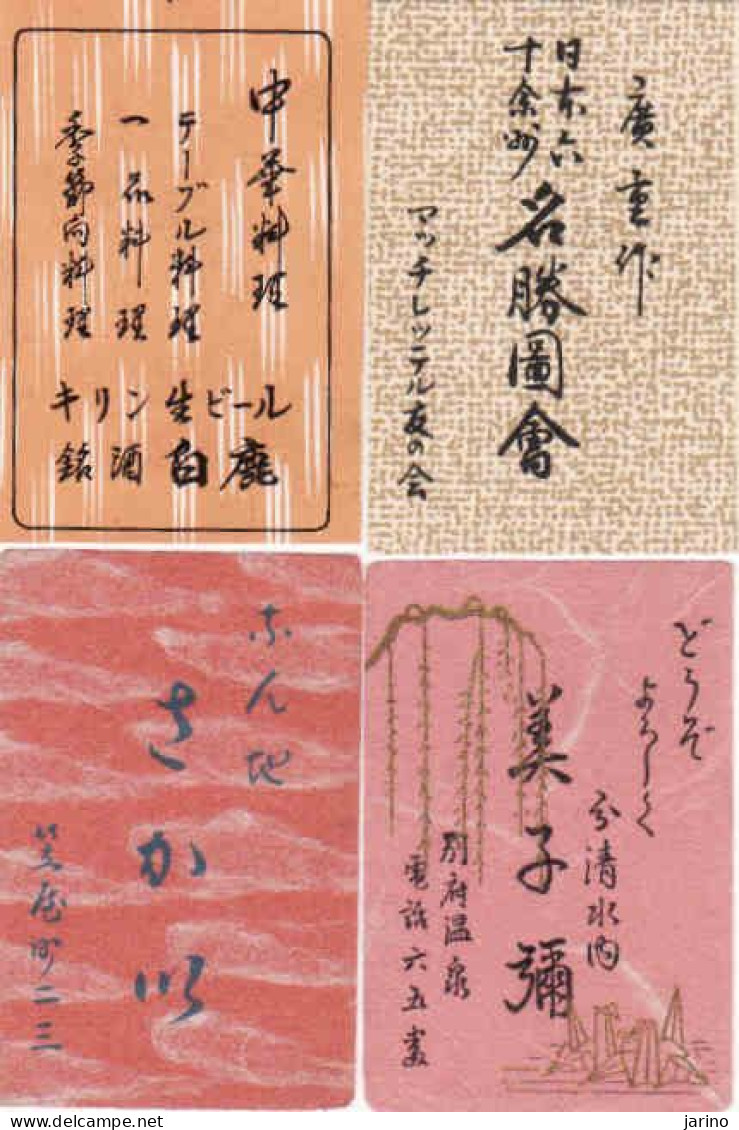 中華料理
テーブル料理
一品料理
季節向料理
キリン生ビール
銘酒白鹿
廣重作
日本六
十余州
名勝圖會
マッチレッテル友の会
さか
どうぞ
よろしく
清水内
美子彌
別府温泉
電話六五
jarino